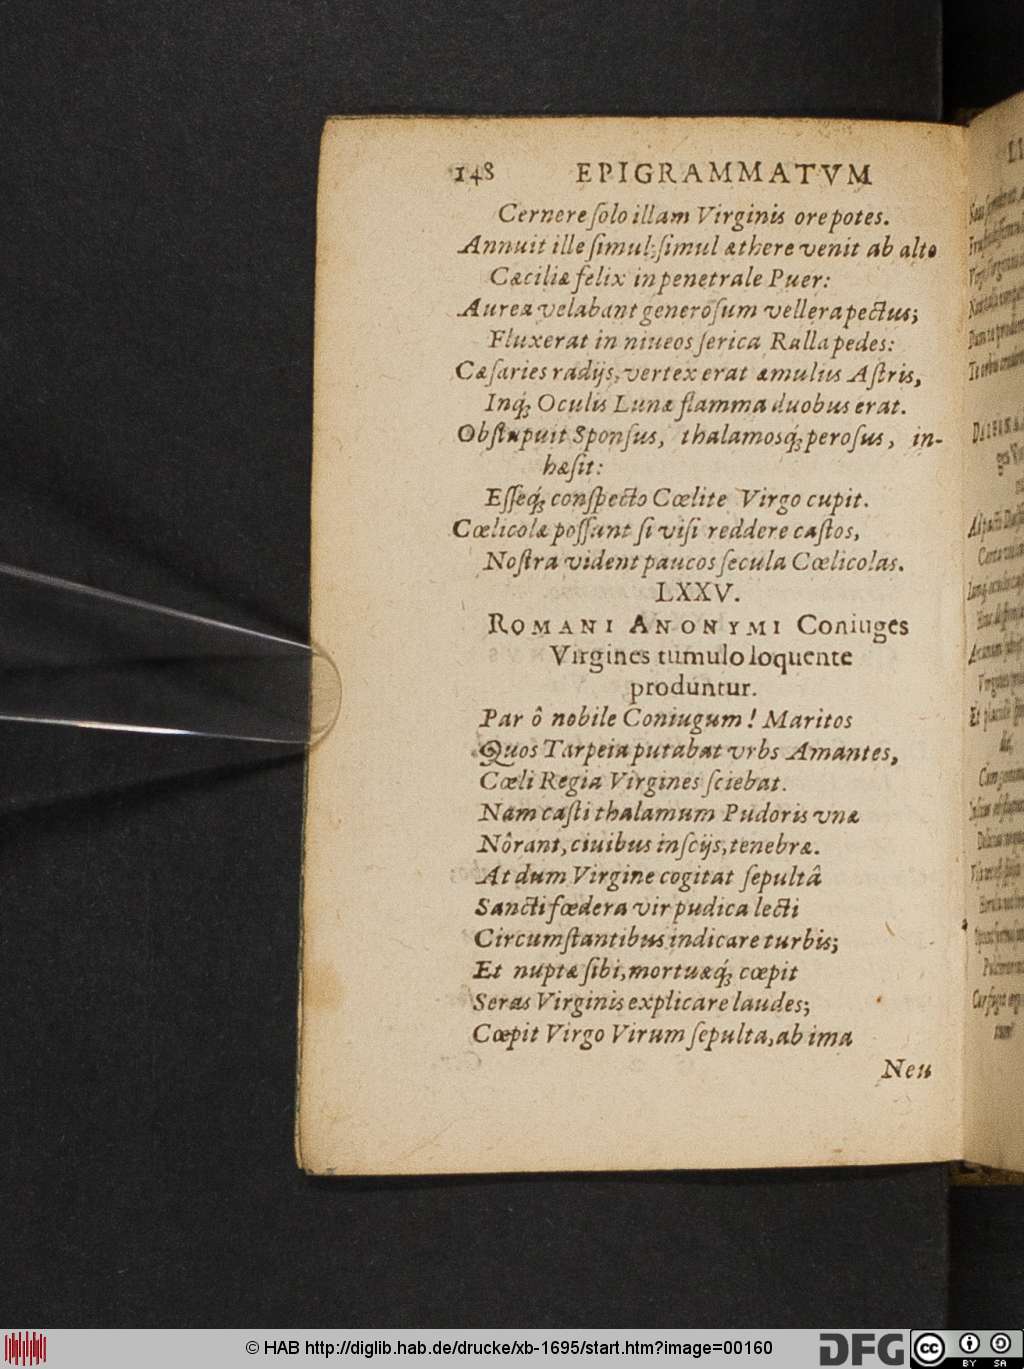 148 EPIGRAMMATVM
Cernere ſolo illam Virginis ore potes.
Annuit ille ſimul; ſimul æthere venit ab alto
Cæciliæ felix in penetrale Puer:
Aurea velabant generoſum vellera pectus;
Fluxerat in niueos ſerica Ralla pedes:
Cæſaries radijs, vertex erat æmulus Aſtris,
Inq́; Oculis Lunæ flamma duobus erat.
Obſtupuit Sponſus, thalamosq́; peroſus, in-
hæſit:
Eſſeq́; conſpecto Cœlite Virgo cupit.
Cœlicolæ poſſunt ſi viſi reddere caſtos,
Noſtra vident paucos ſecula Cœlicolas.
LXXV.
ROMANI ANONYMI Coniuges
Virgines tumulo loquente
produntur.
Par ô nobile Coniugum! Maritos
Quos Tarpeia putabat vrbs Amantes,
Cœli Regia Virgines ſciebat.
Nam caſti thalamum Pudoris vnæ
Nôrant, ciuibus inſcijs, tenebræ.
At dum Virgine cogitat ſepultâ
Sancti fœdera vir pudica lecti
Circumſtantibus indicare turbis;
Et nuptæ ſibi, mortuæq́; cœpit
Seras Virginis explicare laudes;
Cœpit Virgo Virum ſepulta, ab ima
Neu
© HAB http://diglib.hab.de/drucke/xb-1695/start.htm?image=00160
DFG
cc BY SA